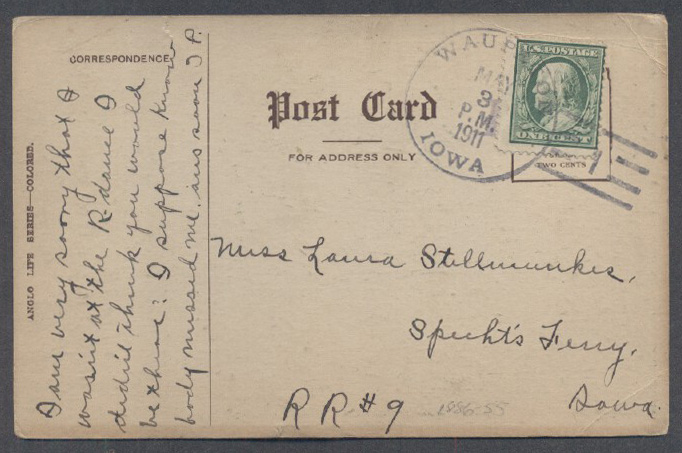 CORRESPONDENCE
Post Card
FOR ADDRESS ONLY
ANGLO LIFE SERIES—COLORED.
I am very soory that I
wasn't at the R dance I
didn't think you would
be there: I suppose know
body missed me. ans soon I P.
WAUP
MAY
3
P.M.
1911
IOWA
U.S. POSTAGE
ONE CENT
TWO CENTS
Miss Laura Stillmunkes,
Specht's Ferry,
Iowa.
RR#9
1886-55